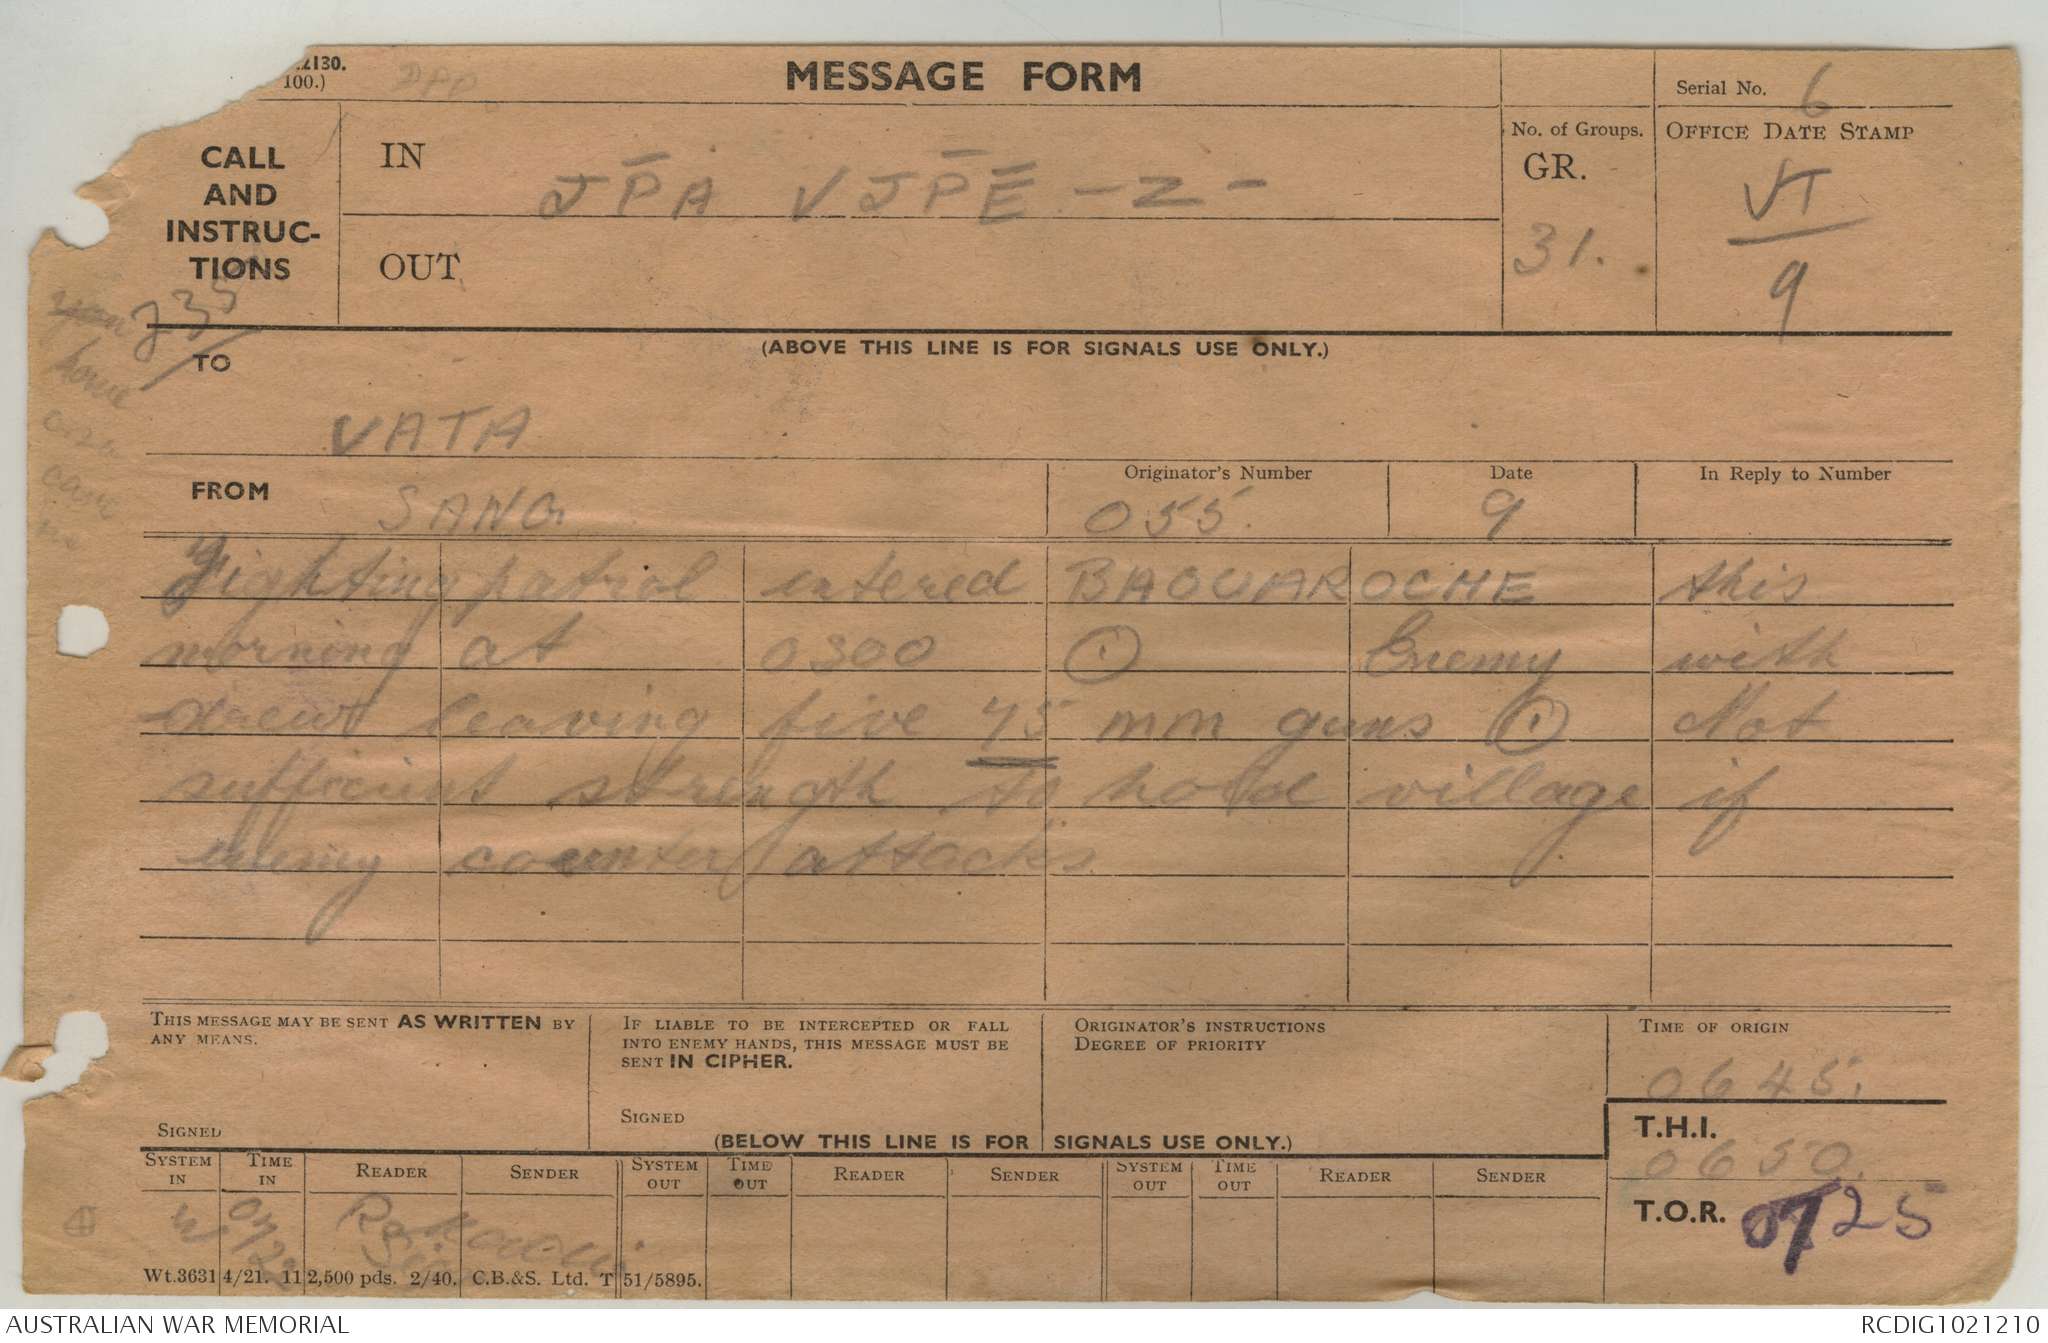 .2130.
100.)
MESSAGE FORM
Serial No. 6
CALL AND INSTRUC- TIONS
IN
J P̄ A V J P̄ E - Z -
OUT
No. of Groups.
GR.
31.
OFFICE DATE STAMP
VT
9
235
(ABOVE THIS LINE IS FOR SIGNALS USE ONLY.)
TO
VATA
FROM
SANG
Originator's Number
055.
Date
9
In Reply to Number
Fighting patrol entered BAOUAROCHE this
morning at 0300 Enemy with
drew leaving five 75 mm guns Not
sufficient strength to hold village if
enemy counter attacks
THIS MESSAGE MAY BE SENT AS WRITTEN BY
ANY MEANS.
SIGNED
IF LIABLE TO BE INTERCEPTED OR FALL
INTO ENEMY HANDS, THIS MESSAGE MUST BE
SENT IN CIPHER.
SIGNED
ORIGINATOR'S INSTRUCTIONS
DEGREE OF PRIORITY
TIME OF ORIGIN
0645.
(BELOW THIS LINE IS FOR SIGNALS USE ONLY.)
T.H.I.
0650.
T.O.R. 0725
SYSTEM IN TIME IN READER SENDER SYSTEM OUT TIME OUT READER SENDER SYSTEM OUT TIME OUT READER SENDER
Wt.3631 4/21. 11 2,500 pds. 2/40. C.B.&S. Ltd. T 51/5895.
AUSTRALIAN WAR MEMORIAL
RCDIG1021210